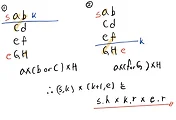 ① ②
s a b k s a b
c d c d
e f e f k
e G H G H e
a × (b or C) × H a × (f or G) × H
∴ (s, k) × (k+1, e)
s.h × k.r × e.r